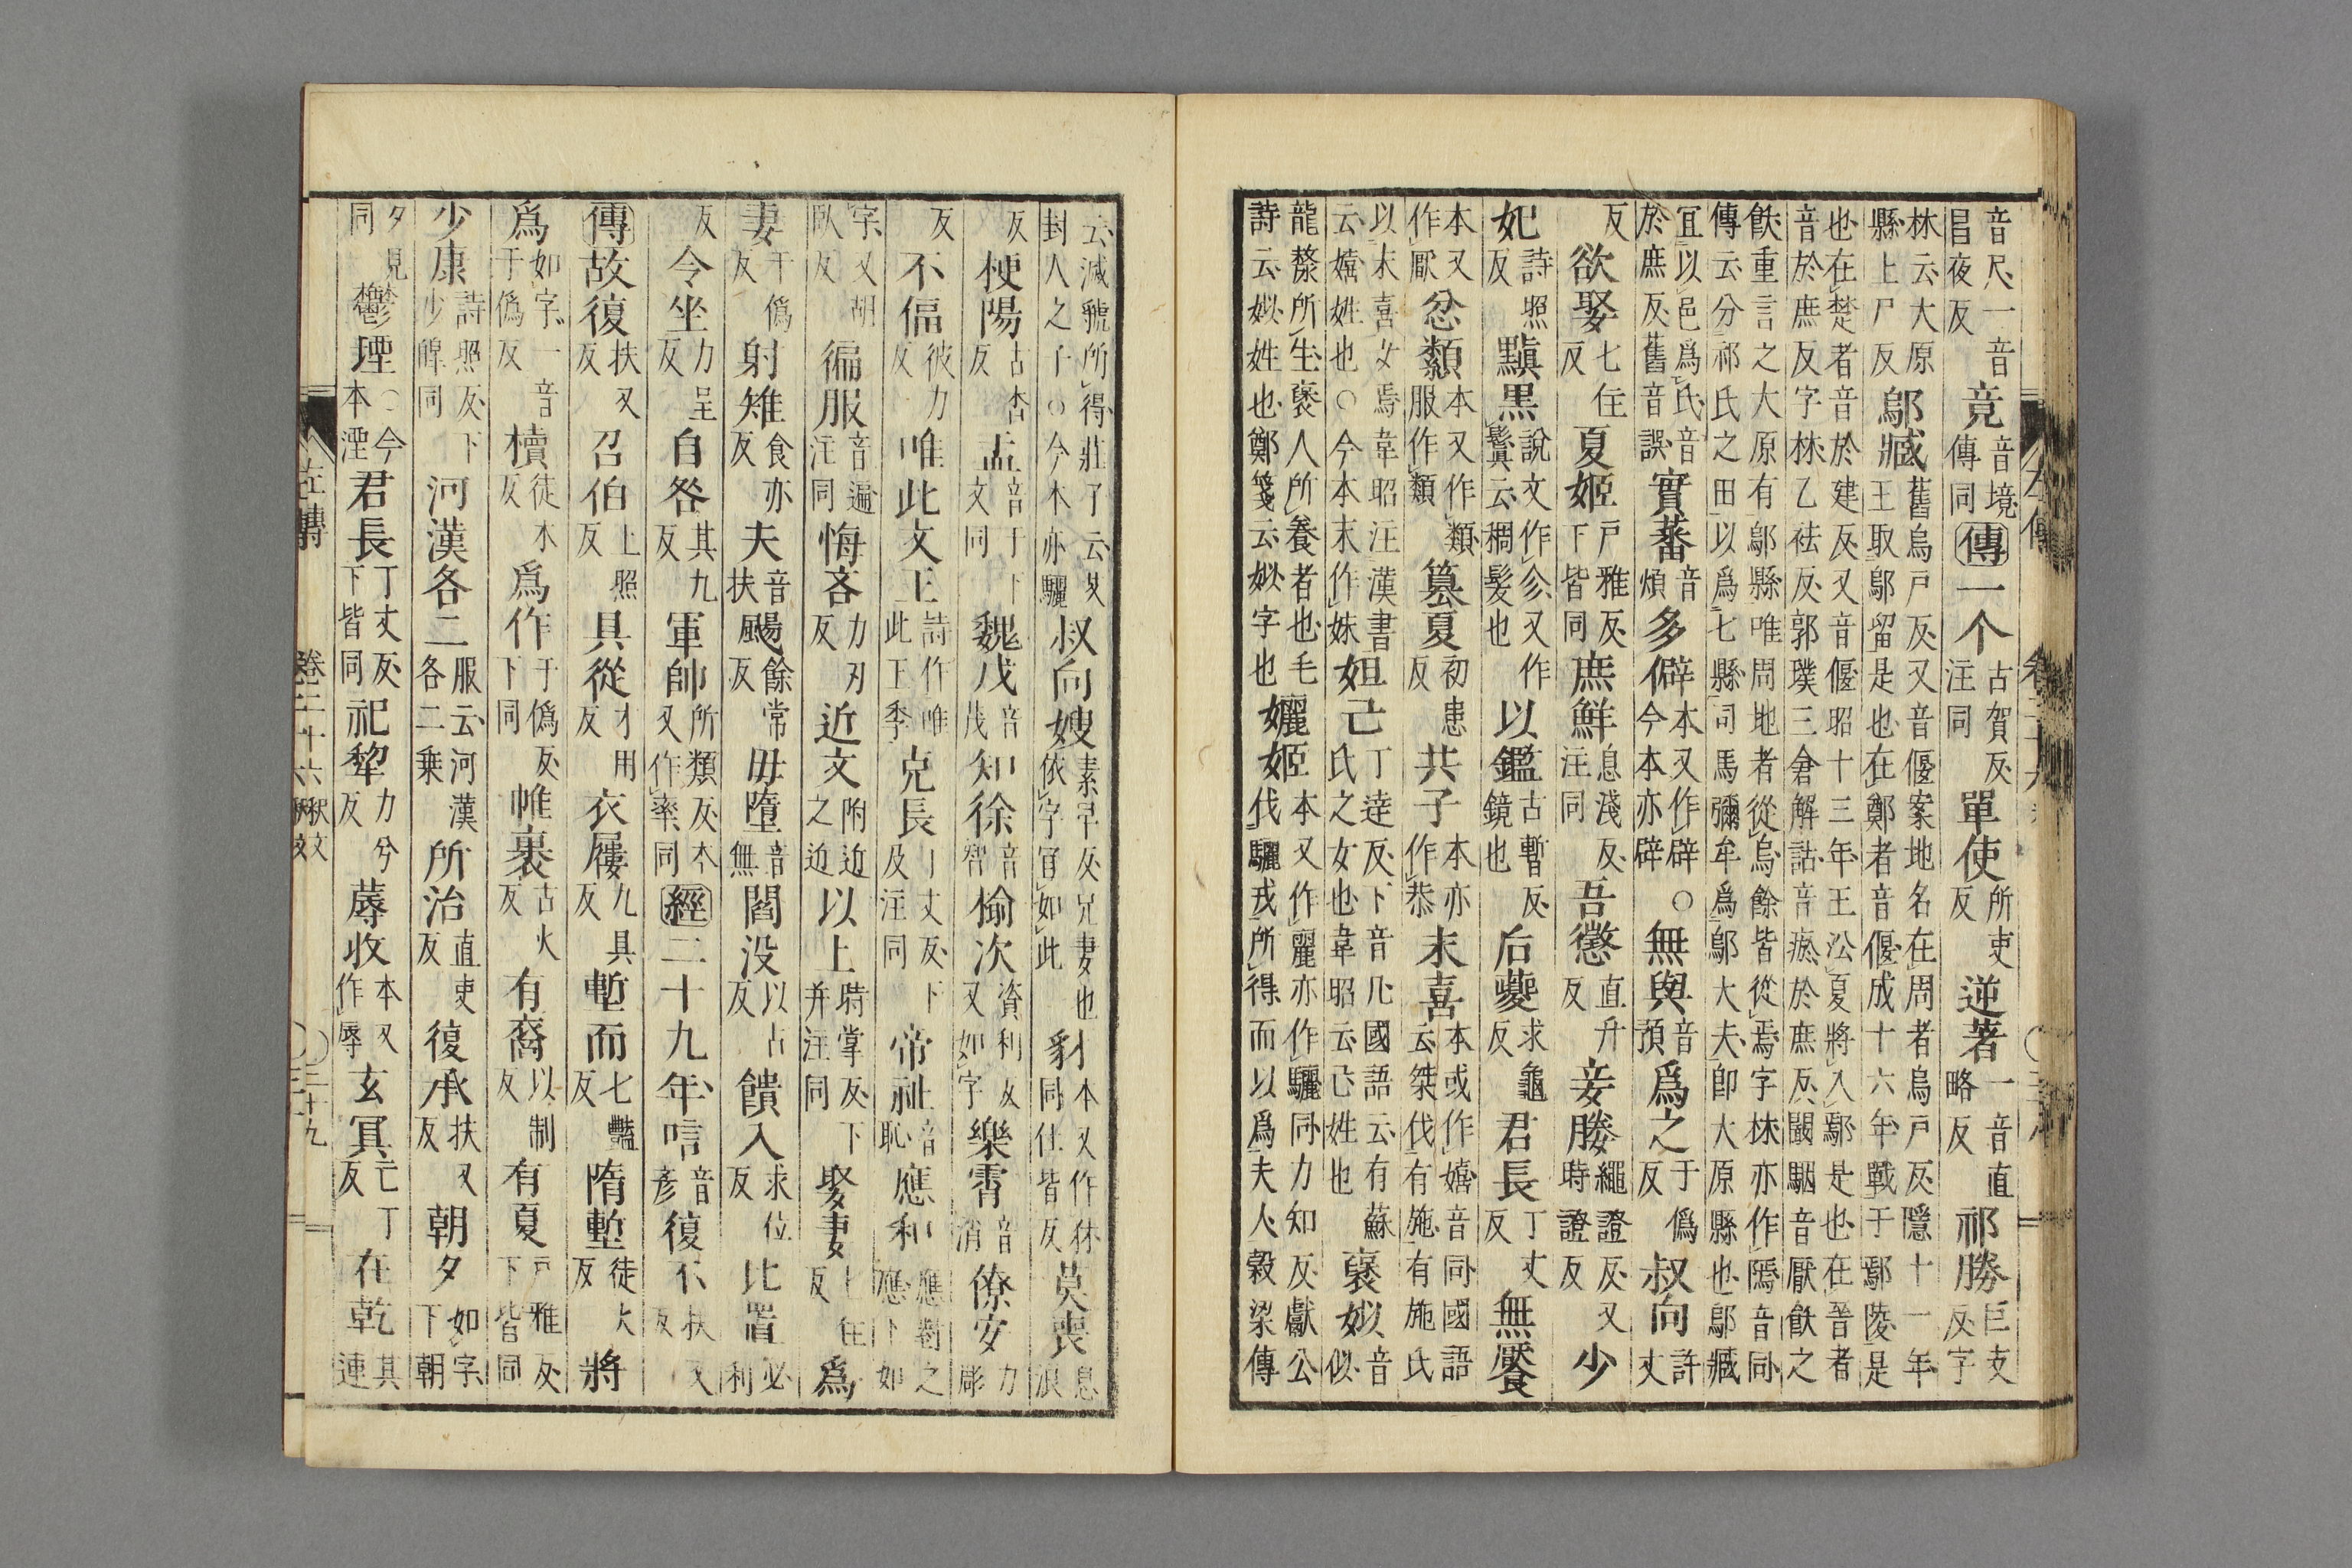 音尺一音昌夜反竟音境傳同傳一个古賀反注同單使所吏反逆著一音直略反祁勝巨支反字
林云大原縣上尸反鄔臧舊烏戸反又音偃案地名在周者烏戸反隱十一年王取鄔留是也在鄭者音偃成十六年戰于鄢陵是
也在楚者音於建反又音偃昭十三年王沿夏將入鄢是也在晉者音於庶反字林乙袪反郭璞三倉解詁音瘀於庶反闞駰音厭飫之
飫重言之大原有鄔縣唯周地者從烏餘皆從焉字林亦作隖音同傳云分祁氏之田以爲七縣司馬彌牟爲鄔大夫卽大原縣也鄔臧
宜以邑爲氏音於庶反舊音誤實蕃音煩多僻本又作辟○今本亦辟無與音預爲之于僞反叔向許丈
反欲娶七住反夏姬戸雅反下皆同庶鮮息淺反注同吾懲直升反妾媵繩證反又時證反少
妃詩照反黰黑說文作㐱又作鬒云稠髮也以鑑古暫反鏡也后夔求龜反君長丁丈反無饜
本又作厭忿纇本又作類服作類簒夏初患反共子本亦作恭末喜本或作嬉音同國語云桀伐有施有施氏
以末喜女焉韋昭注漢書云嬉姓也○今本末作妹妲己丁達反下音几國語云有蘇氏之女也韋昭云己姓也褒姒音似
龍漦所生褒人所養者也毛詩云姒姓也鄭箋云姒字也孋姬本又作麗亦作驪同力知反獻公伐驪戎所得而以爲夫人穀梁傳
云滅虢所得莊子云艾封人之子○今本亦驪叔向嫂素早反兄妻也依字宜如此豺本又作犲同仕皆反莫喪息浪
反梗陽古杏反盂音于下文同魏戊音茂知徐音智榆次資利反又如字樂霄音消僚安力彫
反不偪彼力反唯此文王詩作唯此王季克長丁丈反下及注同帝祉音恥應和應對之應下如
字又胡臥反徧服音遍注同悔吝力刃反近文附近之近以上時掌反下并注同娶妻七住反爲
妻于僞反射雉食亦反夫音扶颺餘常反毋墮音無閻没以占反饋入求位反比置必利
反令坐力呈反自咎其九反軍帥所類反本又作率同經二十九年唁音彥復不扶又反
傳故復扶又反召伯上照反具從才用反衣屨九具反塹而七豔反隋塹徒火反將
爲如字一音于僞反櫝徒木反爲作于僞反下同帷裹古火反有裔以制反有夏戸雅反下皆同
少康詩照反下少皥同河漢各二服云河漢各二乗所治直吏反復承扶又反朝夕如字下朝
夕見同鬱堙○今本湮君長丁丈反下皆同祀犂力兮反蓐收本又作辱玄冥亡丁反在乾其連
左傳　卷二十六　釈文　二十九